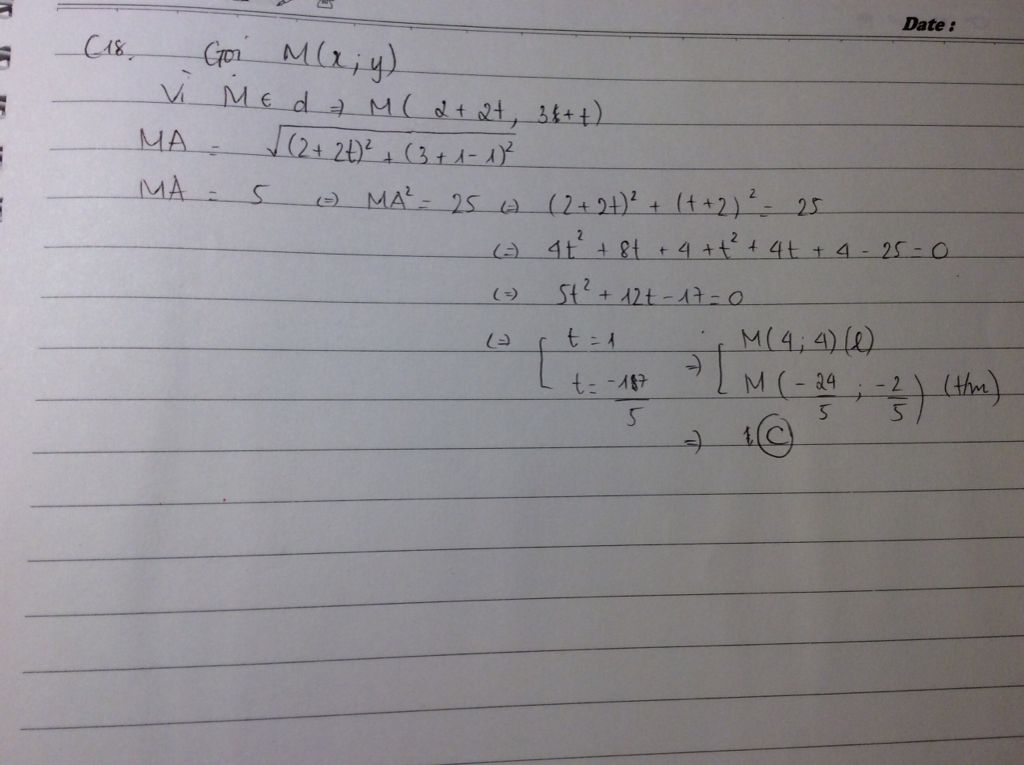 Date :
C18. Gọi M(x; y)
Vì M ∈ d ⇒ M( 2 + 2t, 3 + t)
MA = √(2 + 2t)² + (3 + 1 - 1)²
MA = 5 (=) MA² = 25 (=) (2 + 2t)² + (t + 2)² = 25
(=) 4t² + 8t + 4 + t² + 4t + 4 - 25 = 0
(=) 5t² + 12t - 17 = 0
(=) [ t = 1 ⇒ [ M(4; 4) (l)
t = -17/5 M(-24/5 ; -2/5) (t/m)
⇒ C